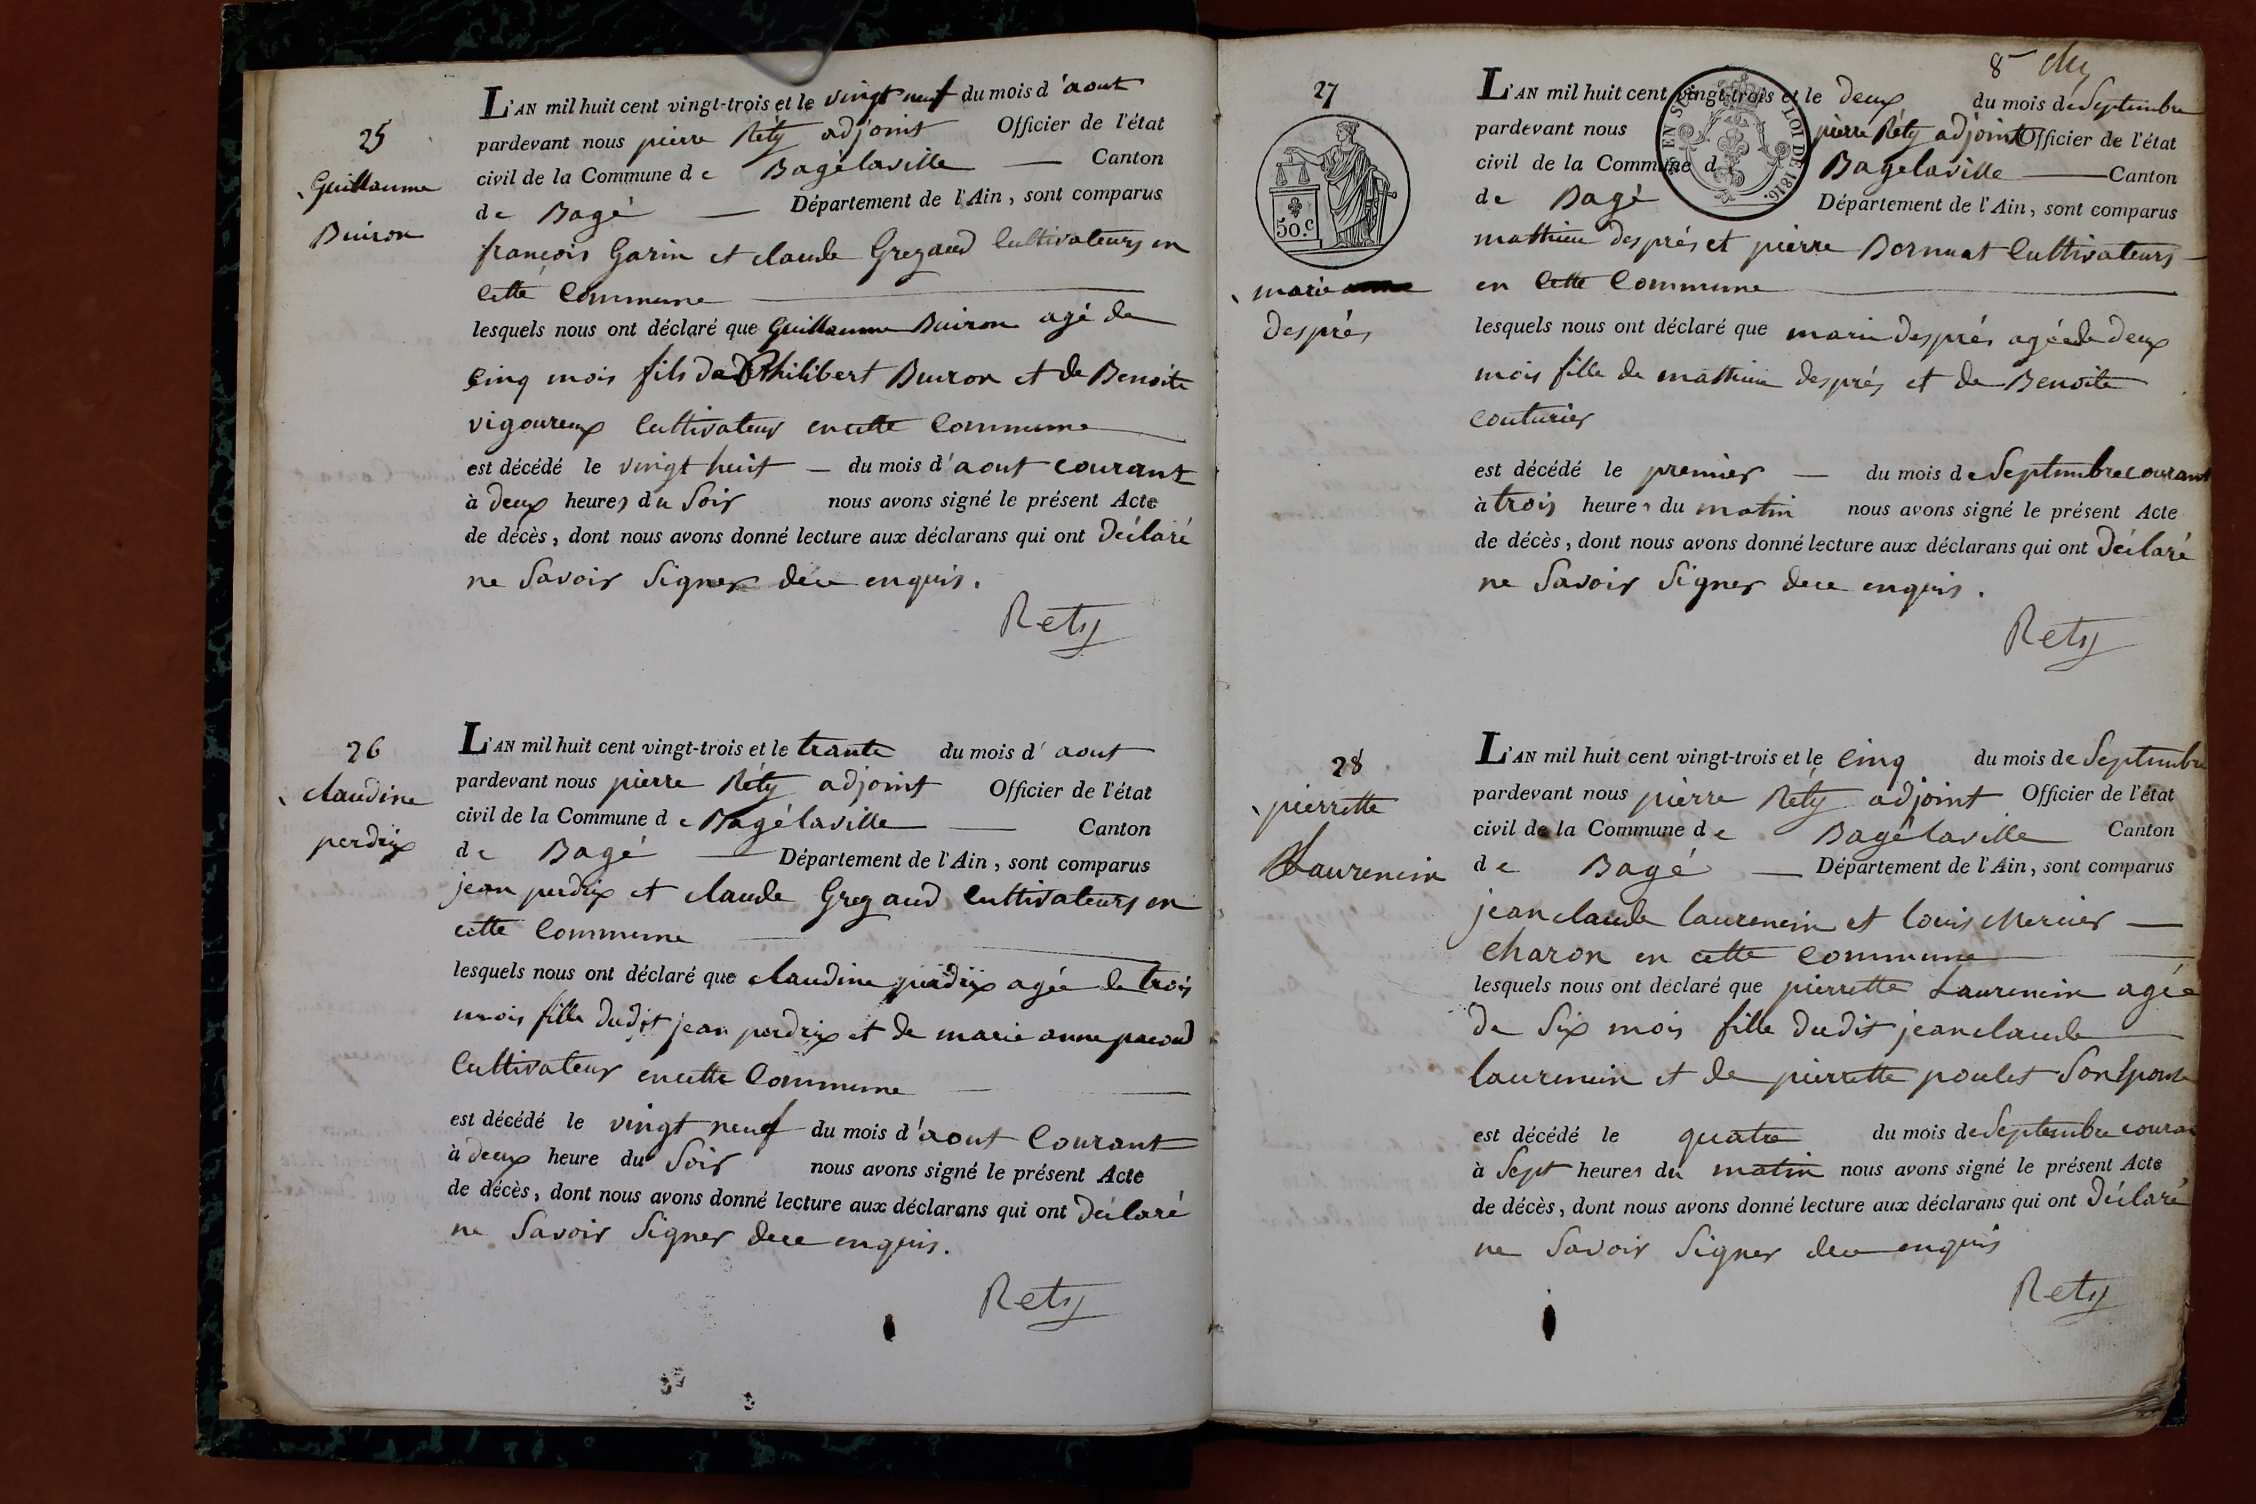 25
Guillaume
Buiron
L'AN mil huit cent vingt-trois et le vingt neuf du mois d'aout
pardevant nous pierre Réty adjoint Officier de l'état
civil de la Commune de Bagélaville Canton
de Bagé Département de l'Ain, sont comparus
françois Garin et claude Gregaud Cultivateurs en
Cette Commune
lesquels nous ont déclaré que Guillaume Buiron agé de
Cinq mois fils de Philibert Buiron et de Benoite
vigoureux Cultivateur en cette Commune
est décédé le vingt huit du mois d'aout courant
à deux heures du Soir nous avons signé le présent Acte
de décès, dont nous avons donné lecture aux déclarans qui ont Déclaré
ne Savoir Signer dece enquis.
Rety
26
claudine
perdrix
L'AN mil huit cent vingt-trois et le trante du mois d'aout
pardevant nous pierre Réty adjoint Officier de l'état
civil de la Commune de Bagélaville Canton
de Bagé Département de l'Ain, sont comparus
jean perdrix et claude Gregaud Cultivateurs en
cette Commune
lesquels nous ont déclaré que claudine perdrix agée de trois
mois fille dudit jean perdrix et de marie anne pacoud
Cultivateur en cette Commune
est décédé le vingt neuf du mois d'aout Courant
à deux heure du Soir nous avons signé le présent Acte
de décès, dont nous avons donné lecture aux déclarans qui ont Déclaré
ne Savoir Signer dece enquis.
Rety
8
27
50.c
EN SUS
LOI DE 1816.
marie
després
L'AN mil huit cent vingt-trois et le deux du mois de Septembre
pardevant nous pierre Réty adjoint Officier de l'état
civil de la Commune d Bagélaville Canton
de Bagé Département de l'Ain, sont comparus
mathieu després et pierre Bornuat Cultivateurs
en Cette Commune
lesquels nous ont déclaré que marie després agée de deux
mois fille de mathieu després et de Benoite
couturier
est décédé le premier du mois de Septembre courant
à trois heures du matin nous avons signé le présent Acte
de décès, dont nous avons donné lecture aux déclarans qui ont Déclaré
ne Savoir Signer dece enquis.
Rety
28
pierrette
Laurencin
L'AN mil huit cent vingt-trois et le Cinq du mois de Septembre
pardevant nous pierre Réty adjoint Officier de l'état
civil de la Commune de Bagélaville Canton
de Bagé Département de l'Ain, sont comparus
jean claude laurencin et louis Mercier
charon en cette Commune
lesquels nous ont déclaré que pierrette Laurencin agée
de Six mois fille dudit jean claude
laurencin et de pierrette poulet Son Epouse
est décédé le quatre du mois de Septembre couran
à Sept heures du matin nous avons signé le présent Acte
de décès, dont nous avons donné lecture aux déclarans qui ont Déclaré
ne Savoir Signer dece enquis
Rety